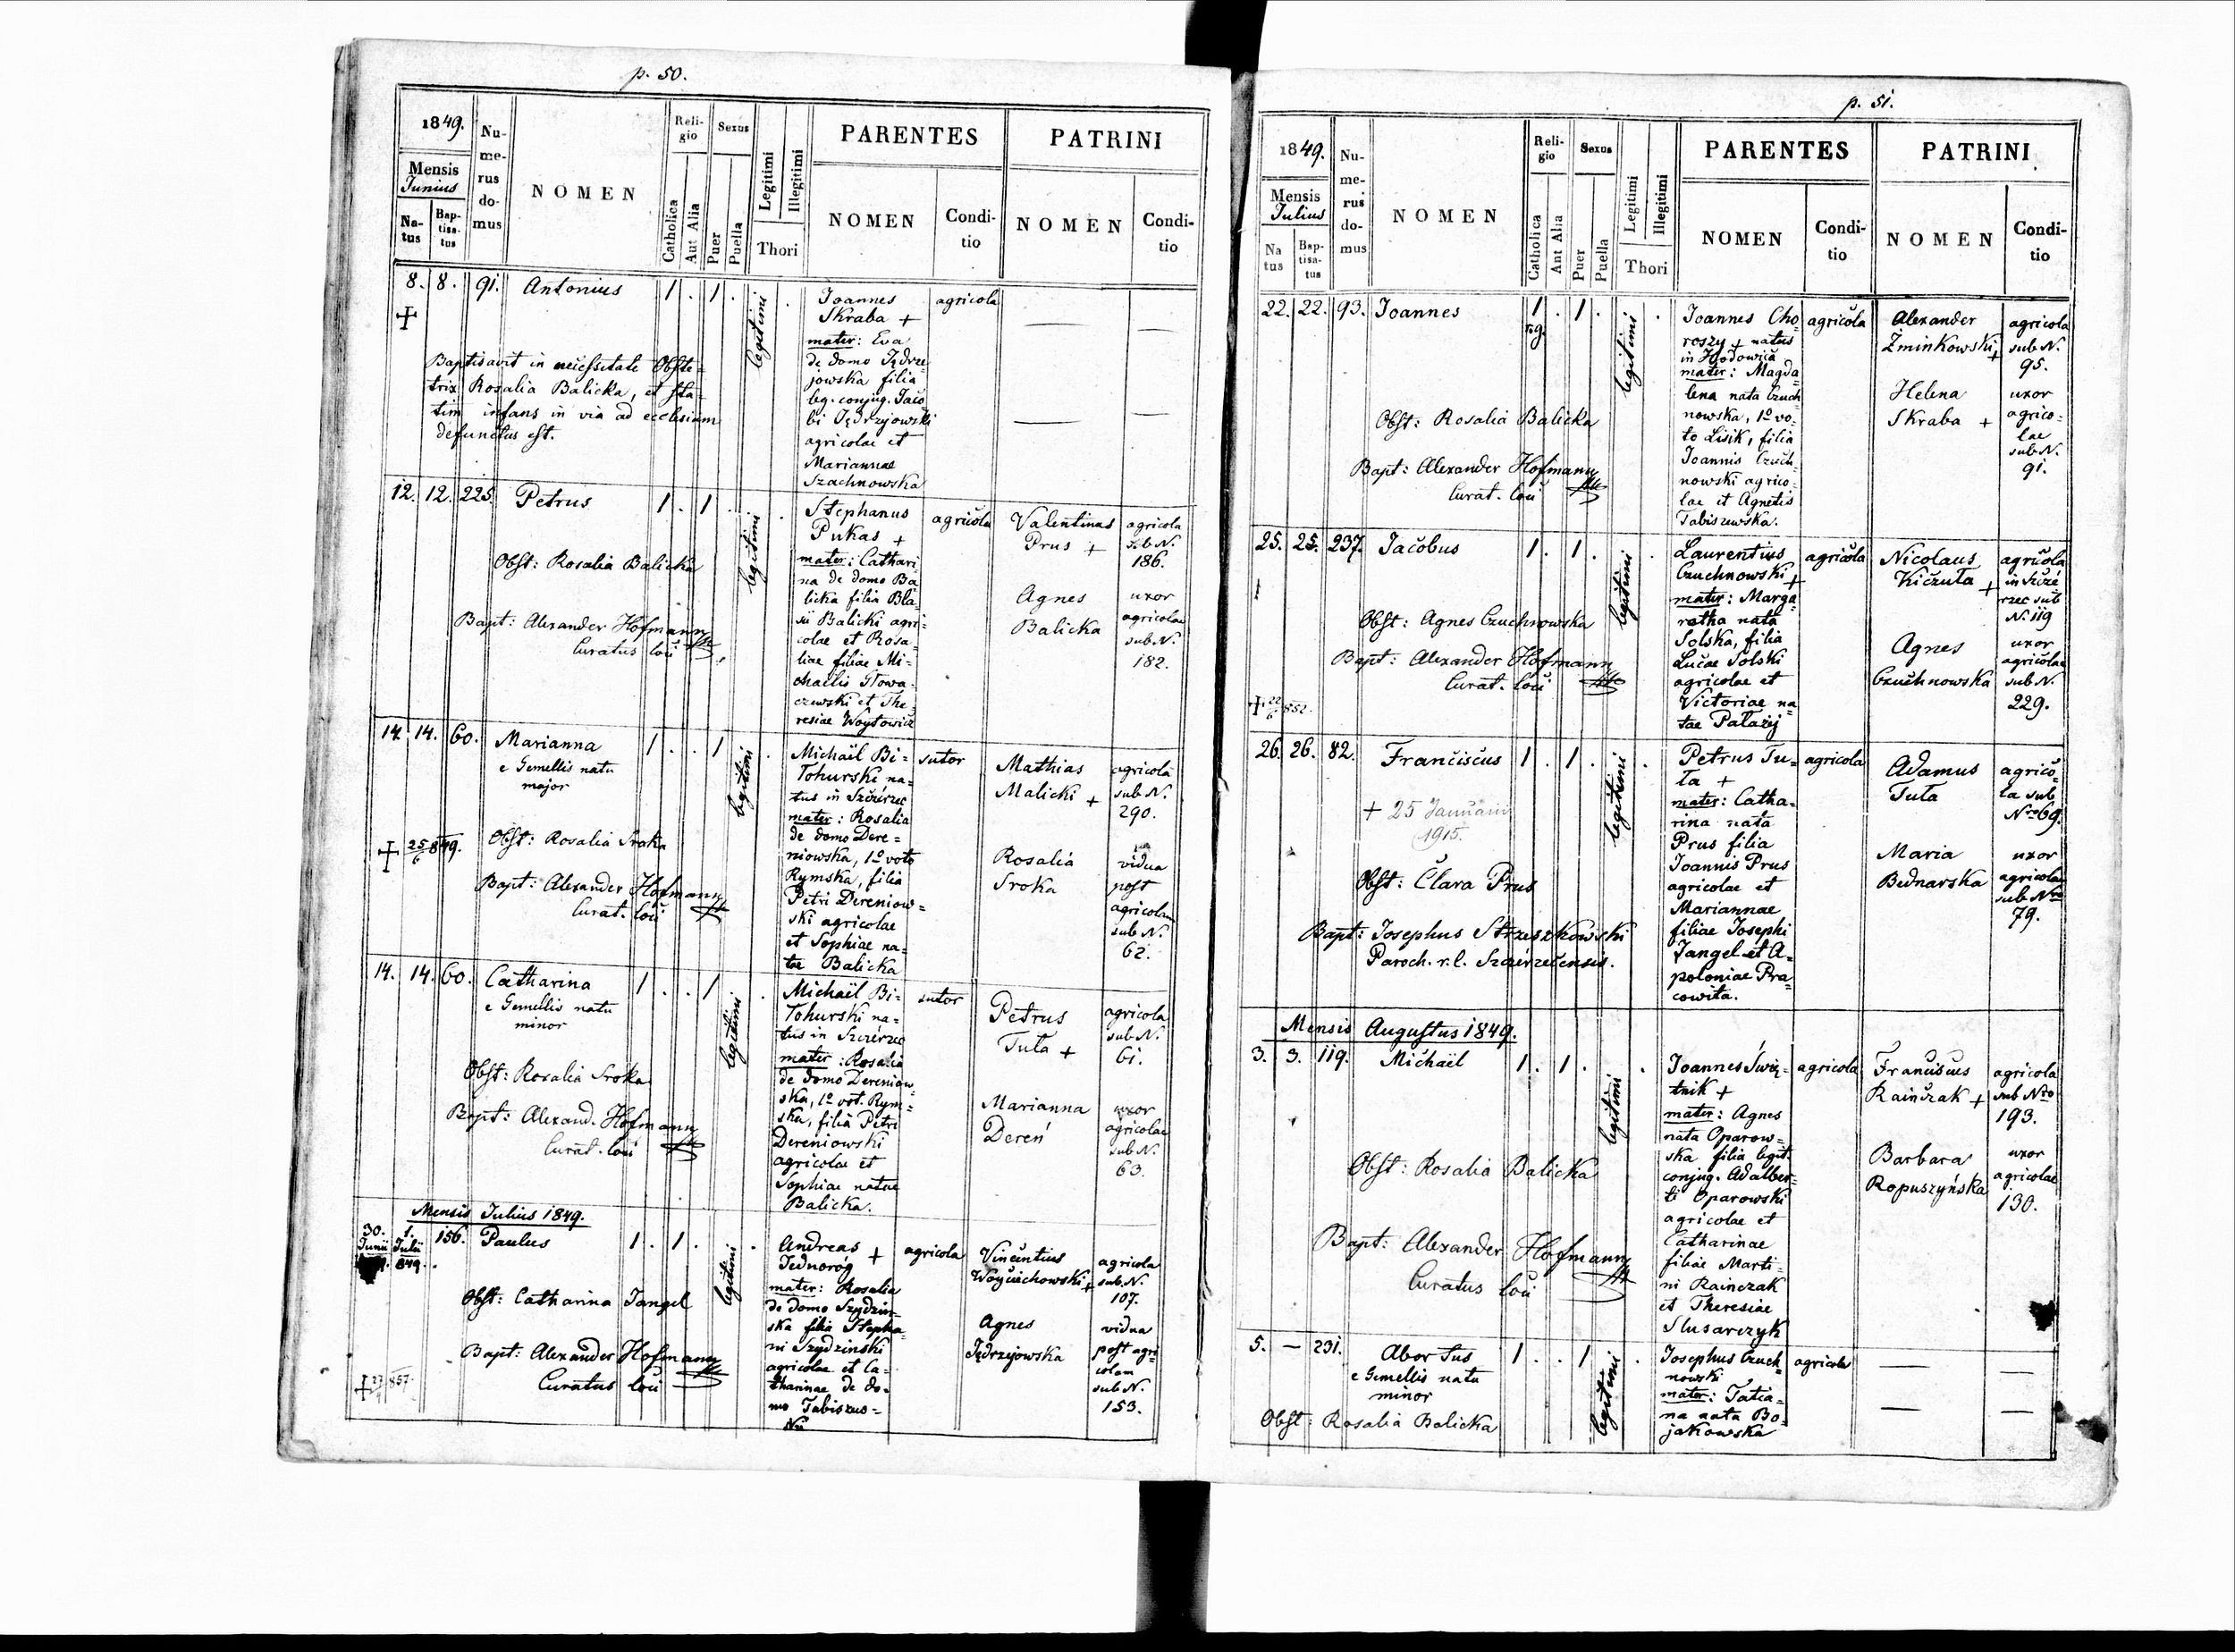 p. 50.
1849.
Mensis
Junius
Na-
tus
Bap-
tisa-
tus
Nu-
me-
rus
do-
mus
NOMEN
Reli-
gio
Catholica
Aut Alia
Sexus
Puer
Puella
Legitimi
Illegitimi
Thori
PARENTES
NOMEN
Condi-
tio
PATRINI
NOMEN
Condi-
tio
8. 8. 91. Antonius 1 . 1 .
legitimi
Baptisavit in necessitate Obste=
trix Rosalia Balicka, et sta=
tim infans in via ad ecclesiam
defunctus est.
Joannes
Skraba +
mater: Eva
de domo Jędrze
jowska filia
leg. conjug. Jaco
bi Jędrzejowski
agricolae et
Mariannae
Szachnowska
agricola
12. 12. 225. Petrus 1 . 1 .
legitimi
Obst: Rosalia Balicka
Bapt: Alexander Hofmann
Curatus loci
Stephanus
Pukas +
mater: Cathari
na de domo Ba
licka filia Bla
sii Balicki agri=
colae et Rosa=
liae filiae Mi=
chaelis Głowa=
czewski et The
resiae Woytowicz
agricola
Valentinus
Prus +
agricola
sub N.
186.
Agnes
Balicka
uxor
agricolae
sub N.
182.
14. 14. 60. Marianna 1 . . 1
e Gemellis natu
major
legitimi
25/6 849.
Obst: Rosalia Sroka
Bapt: Alexander Hofmann
Curat. loci
Michaël Bi=
Tohurski na=
tus in Szczérzec
mater: Rosalia
de domo Dere=
niowska, 1º voto
Rymska, filia
Petri Dereniow=
ski agricolae
et Sophiae na=
tae Balicka
sutor
Mathias
Malicki +
agricola
sub N.
290.
Rosalia
Sroka
vidua
post
agricolam
sub N.
62.
14. 14. 60. Catharina 1 . . 1
e Gemellis natu
minor
legitimi
Obst: Rosalia Sroka
Bapt: Alexand. Hofmann
Curat. loci
Michaël Bi=
Tohurski na=
tus in Szczérzec
mater: Rosalia
de domo Dereniow
ska, 1º vot. Rym=
ska, filia Petri
Dereniowski
agricolae et
Sophiae natae
Balicka.
sutor
Petrus
Tuta +
agricola
sub N.
61.
Marianna
Dereń
uxor
agricolae
sub N.
63.
Mensis Julius 1849.
30.
Junii
1.
Julii
849.
156. Paulus 1 . 1 .
legitimi
Obst: Catharina Jangel
Bapt: Alexander Hofmann
Curatus loci
857.
Andreas +
Jednoróg
mater: Rosalia
de domo Szydzin
ska filia Stepha=
ni Szydzinski
agricolae et Ca=
tharinae de do=
mo Tabiszews=
agricola
Vincentius
Woyciechowski +
agricola
sub N.
107.
Agnes
Jędrzejowska
vidua
post agri=
colam
sub N.
153.
p. 51.
1849.
Mensis
Julius
Na
tus
Bap-
tisa-
tus
Nu-
me-
rus
do-
mus
NOMEN
Reli-
gio
Catholica
Aut Alia
Sexus
Puer
Puella
Legitimi
Illegitimi
Thori
PARENTES
NOMEN
Condi-
tio
PATRINI
NOMEN
Condi-
tio
22. 22. 93. Joannes 1 . 1 .
legitimi
Obst: Rosalia Balicka
Bapt: Alexander Hofmann
Curat. loci
Joannes Cho
roszy + natus
in Hodowica
mater: Magda
lena nata Czuch
nowska, 1º vo=
to Lisik, filia
Joannis Czuch
nowski agrico=
lae et Agnetis
Tabiszewska.
agricola
Alexander
Żminkowski +
agricola
sub N.
95.
Helena
Skraba +
uxor
agrico=
lae
sub N.
91.
25. 25. 237. Jacobus 1 . 1 .
legitimi
Obst: Agnes Czuchnowska
Bapt: Alexander Hofmann
Curat. loci
852.
Laurentius
Czuchnowski +
mater: Marga=
retha nata
Solska, filia
Lucae Solski
agricolae et
Victoriae na=
tae Pałazij
agricola
Nicolaus
Kiczuła +
agricola
in Szczé
rzec sub
N. 119
Agnes
Czuchnowska
uxor
agricolae
sub N.
229.
26. 26. 82. Franciscus 1 . 1 .
legitimi
+ 25 Januarii
1915.
Obst: Clara Prus
Bapt: Josephus Strzeszkowski
Paroch. r. l. Szczérzecensis.
Petrus Tu=
ta +
mater: Catha=
rina nata
Prus filia
Joannis Prus
agricolae et
Mariannae
filiae Josephi
Jangel et A=
poloniae Pra
cowita.
agricola
Adamus
Tuta
agrico=
la sub
Nro 69.
Maria
Bednarska
uxor
agricolae
sub Nro
79.
Mensis Augustus 1849.
3. 3. 119. Michaël 1 . 1 .
legitimi
Obst: Rosalia Balicka
Bapt: Alexander Hofmann
Curatus loci
Joannes Świą=
tnik +
mater: Agnes
nata Oparow=
ska filia legit.
conjug. Adalber=
ti Oparowski
agricolae et
Catharinae
filiae Marti=
ni Rainczak
et Theresiae
Slusarczyk
agricola
Franciscus
Rainczak +
agricola
sub Nro
193.
Barbara
Ropuszyńska
uxor
agricolae
130.
5. — 231. Abortus 1 . . 1
e Gemellis natu
minor
legitimi
Obst: Rosalia Balicka
Josephus Czuch=
nowski
mater: Tatia=
na nata Bo=
jakowska
agricola